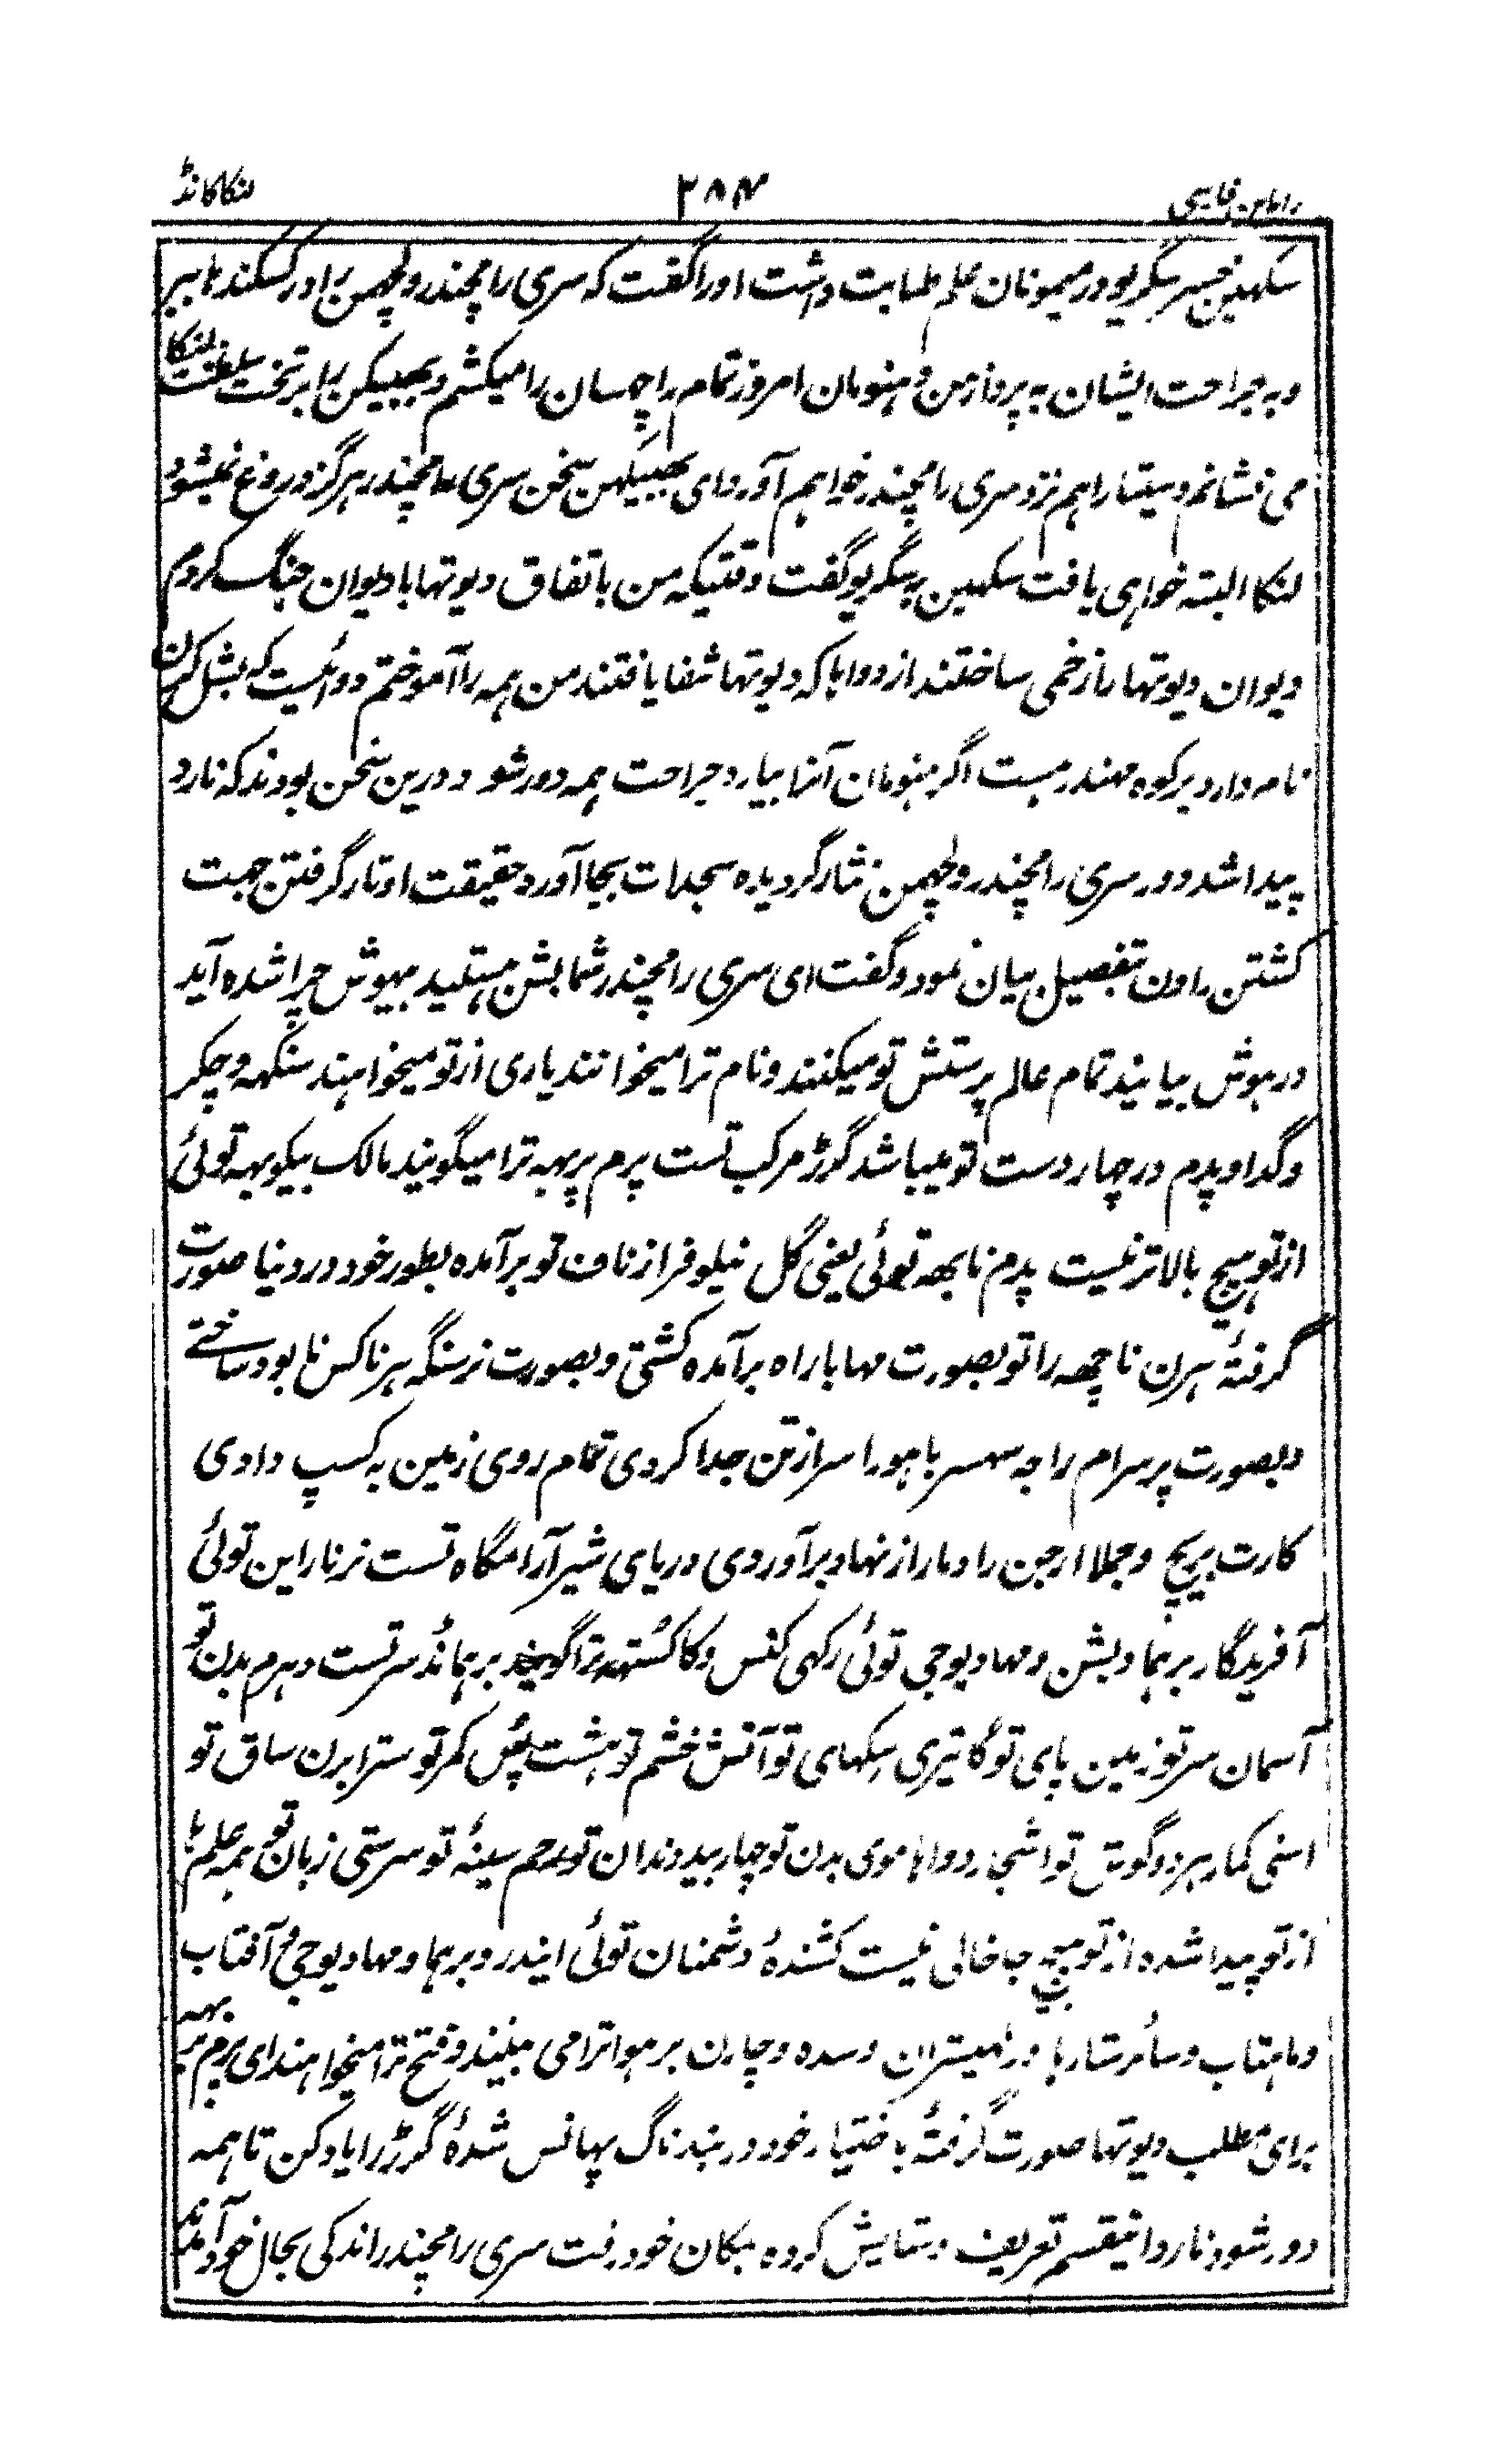 راماین فارسی ۲۸۴ لنکا کانڈ
سکهین خسر سگریو در میمونان علم طبابت داشت اورا گفت که سری رامچندر و لچهمن را در کسکندها ببر
و به جراحت ایشان به پرداز من و هنومان امروز تمام راچهسان را میکشم و بهبیکن را بر تخت سلطنت لنکا
می نشانم و سیتا را هم نزد سری رامچندر خواهم آورد ای بهبیکهن سخن سری رامچندر هرگز دروغ نمیشود
لنکا البته خواهی یافت سکهین به سگریو گفت وقتیکه من باتفاق دیوتها با دیوان جنگ کردم
دیوان دیوتها را زخمی ساختند از دواها که دیوتها شفا یافتند من همه را آموختم دوائیست که بشل کرن
نام دارد بر کوه مهندر هست اگر هنومان آنرا بیارد جراحت همه دور شود درین سخن بودند که نارد
پیدا شد و در سری رامچندر و لچهمن نثار گردیده سجدات بجا آورد حقیقت اوتار گرفتن جهت
کشتن راون بتفصیل بیان نمود و گفت ای سری رامچندر شما بشن هستید بیهوش چرا شده آید
در هوش بیایند تمام عالم پرستش تو میکنند و نام ترا میخوانند یاری از تو میخواهند سنگهه و چکر
و گدا و پدم در چهار دست تو میباشد گرڑ مرکب تست پرم پربهه ترا میگویند مالک بیکوبهه توئی
از تو هیچ بالاتر نیست پدم نابهه توئی یعنی گل نیلوفر از ناف تو برآمده بطور خود در دنیا صورت
گرفتهٔ هرن ناچهه را تو بصورت مها باراه برآمده کشتی و بصورت نرسنگه هرناکس نابود ساختے
و بصورت پرسرام راجه سهسرباهو را سر از تن جدا کردی تمام روی زمین به کسپ دادی
کارت بیرج و جملا ارجن را دمار از نهاد برآوردی دریای شیر آرامگاه تست نر ناراین توئی
آفریدگار برهما و بشن و مهادیوجی توئی رکهی کنس و کاکستهه ترا گویند برهمانڈ سر تست دهرم بدن تو
آسمان سر تو زمین پای تو گائیتری سکهای تو آتش خشم تو هشت بس کمر تو سترابرن ساق تو
اسنی کمار هر دو گوش تو اشجار دواها موی بدن تو چار بید دندان تو رحم سینهٔ تو سرستی زبان تو همه علم ها
از تو پیدا شده از تو هیچ جا خالی نیست کشندهٔ دشمنان توئی ایندر و برهما و مهادیوجی آفتاب
و ماهتاب و سائر ستارها و رکهیسران و سده و چارن بر هوا ترا می بینند و فتح ترا میخواهند ای پرم پربهه
برای مطلب دیوتها صورت گرفتهٔ باختیار خود در بند ناگ پهانس شدهٔ گرڑ را یاد کن تا همه
دور شود نارد اینقسم تعریف و ستایش کرده بمکان خود رفت سری رامچندر اندکی بحال خود آمدند